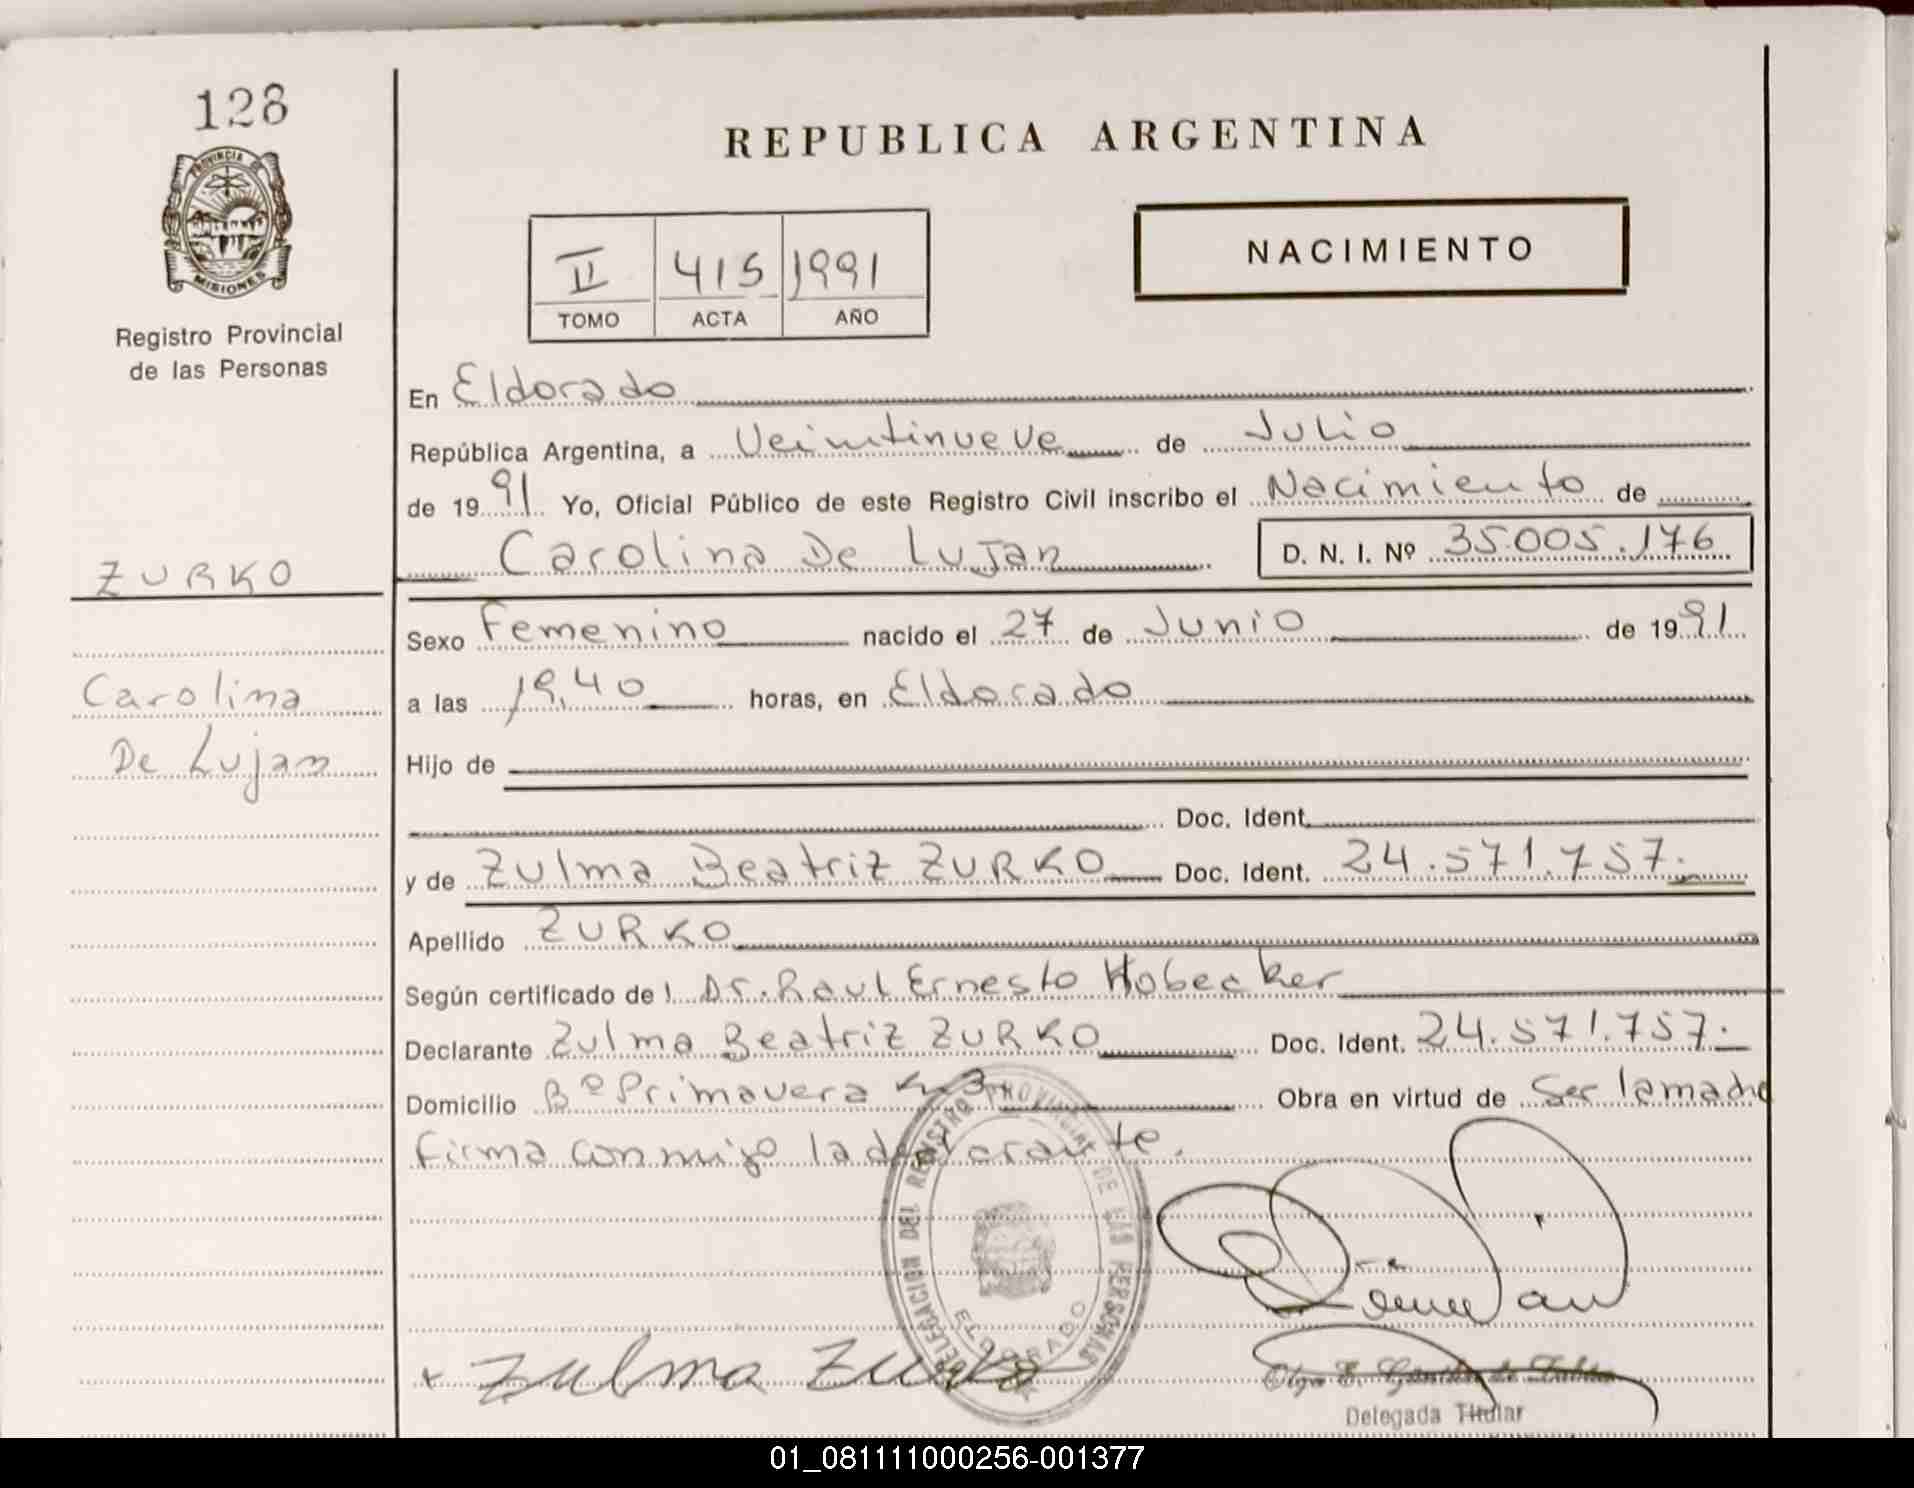 128
PROVINCIA
MISIONES
Registro Provincial
de las Personas
REPUBLICA ARGENTINA
NACIMIENTO
II 415 1991
TOMO ACTA AÑO
En Eldorado
República Argentina, a Veintinueve de Julio
de 1991 Yo, Oficial Público de este Registro Civil inscribo el Nacimiento de
Carolina De Lujan D. N. I. Nº 35.005.176
ZURKO
Carolina
De Lujan
Sexo Femenino nacido el 27 de Junio de 1991
a las 19,40 horas, en Eldorado
Hijo de
Doc. Ident.
y de Zulma Beatriz ZURKO Doc. Ident. 24.571.757.
Apellido ZURKO
Según certificado de l Dr. Raul Ernesto Hobecker
Declarante Zulma Beatriz ZURKO Doc. Ident. 24.571.757.
Domicilio Bº Primavera Km 3 Obra en virtud de Ser la madre
Firma conmigo la declarante.
DELEGACION DEL REGISTRO PROVINCIAL DE LAS PERSONAS
ELDORADO
x Zulma Zurko
Olga E.
Delegada Titular
01_081111000256-001377